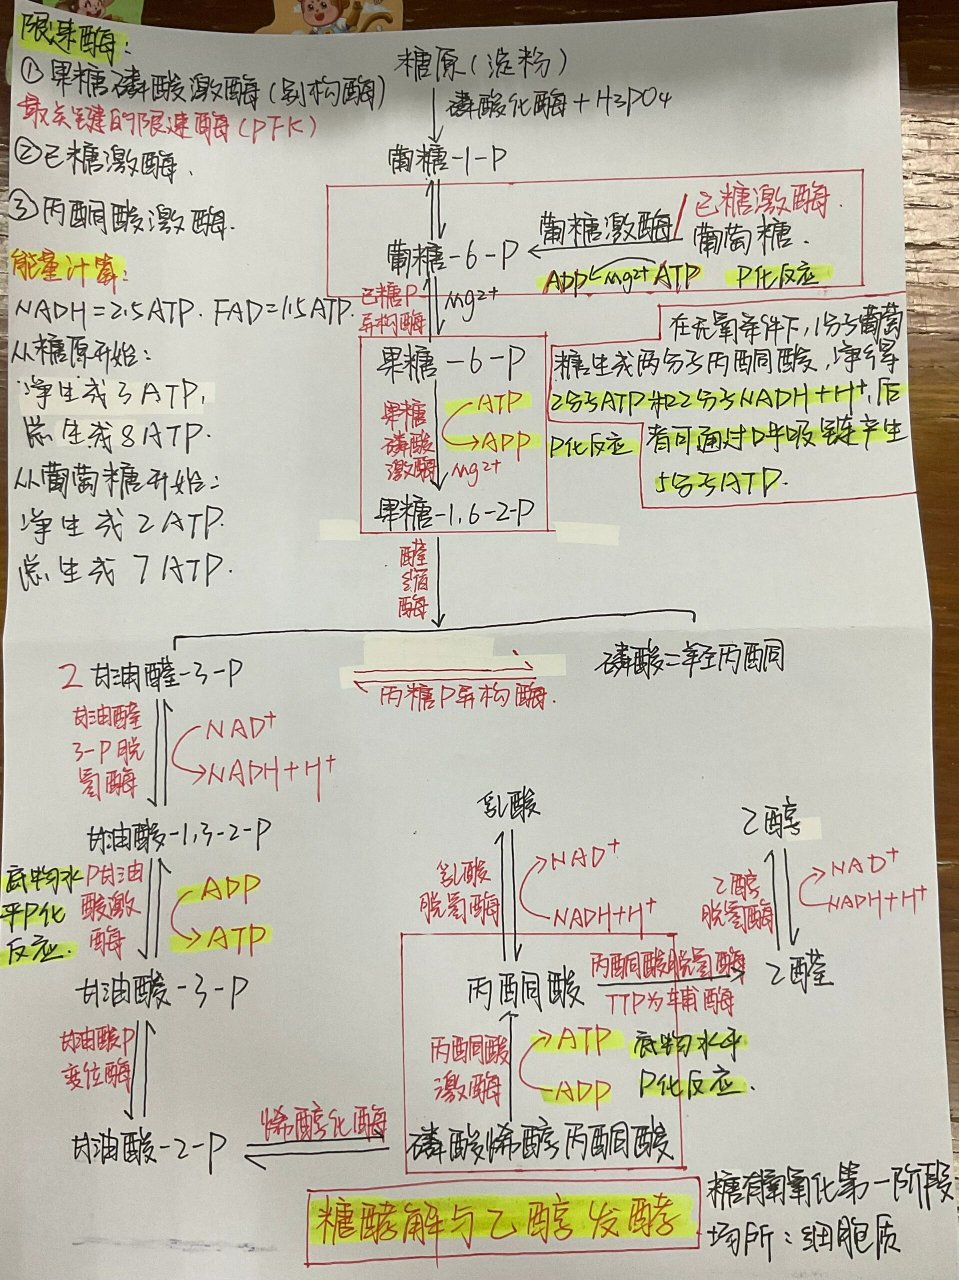 限速酶:
①果糖磷酸激酶(别构酶)
最关键的限速酶(PFK)
②己糖激酶.
③丙酮酸激酶.
能量计算:
NADH=2.5ATP. FAD=1.5ATP.
从糖原开始:
净生成3ATP,
总生成8ATP.
从葡萄糖开始:
净生成2ATP.
总生成7ATP.
糖原(淀粉)
磷酸化酶+H3PO4
葡糖-1-P
葡糖激酶/己糖激酶.
葡糖-6-P
葡萄糖.
ADP Mg2+ ATP P化反应
己糖P异构酶
Mg2+
果糖-6-P
果糖磷酸激酶
ATP
ADP
P化反应
Mg2+
果糖-1,6-2-P
在无氧条件下,1分子葡萄
糖生成两分子丙酮酸,净得
2分子ATP和2分子NADH+H+,后
者可通过呼吸链产生
5分子ATP.
醛缩酶
2 甘油醛-3-P
丙糖P异构酶.
磷酸二羟丙酮
甘油醛
3-P脱
氢酶
NAD+
NADH+H+
甘油酸-1,3-2-P
底物水
平P化
反应.
P甘油
酸激
酶
ADP
ATP
甘油酸-3-P
甘油酸P
变位酶
甘油酸-2-P
烯醇化酶
磷酸烯醇丙酮酸
丙酮酸
激酶
ATP
ADP
底物水平
P化反应.
丙酮酸
丙酮酸脱氢酶
TTP为辅酶
乙醛
乳酸
乳酸
脱氢酶
NAD+
NADH+H+
乙醇
乙醇
脱氢酶
NAD+
NADH+H+
糖酵解与乙醇发酵
糖有氧氧化第一阶段
场所:细胞质